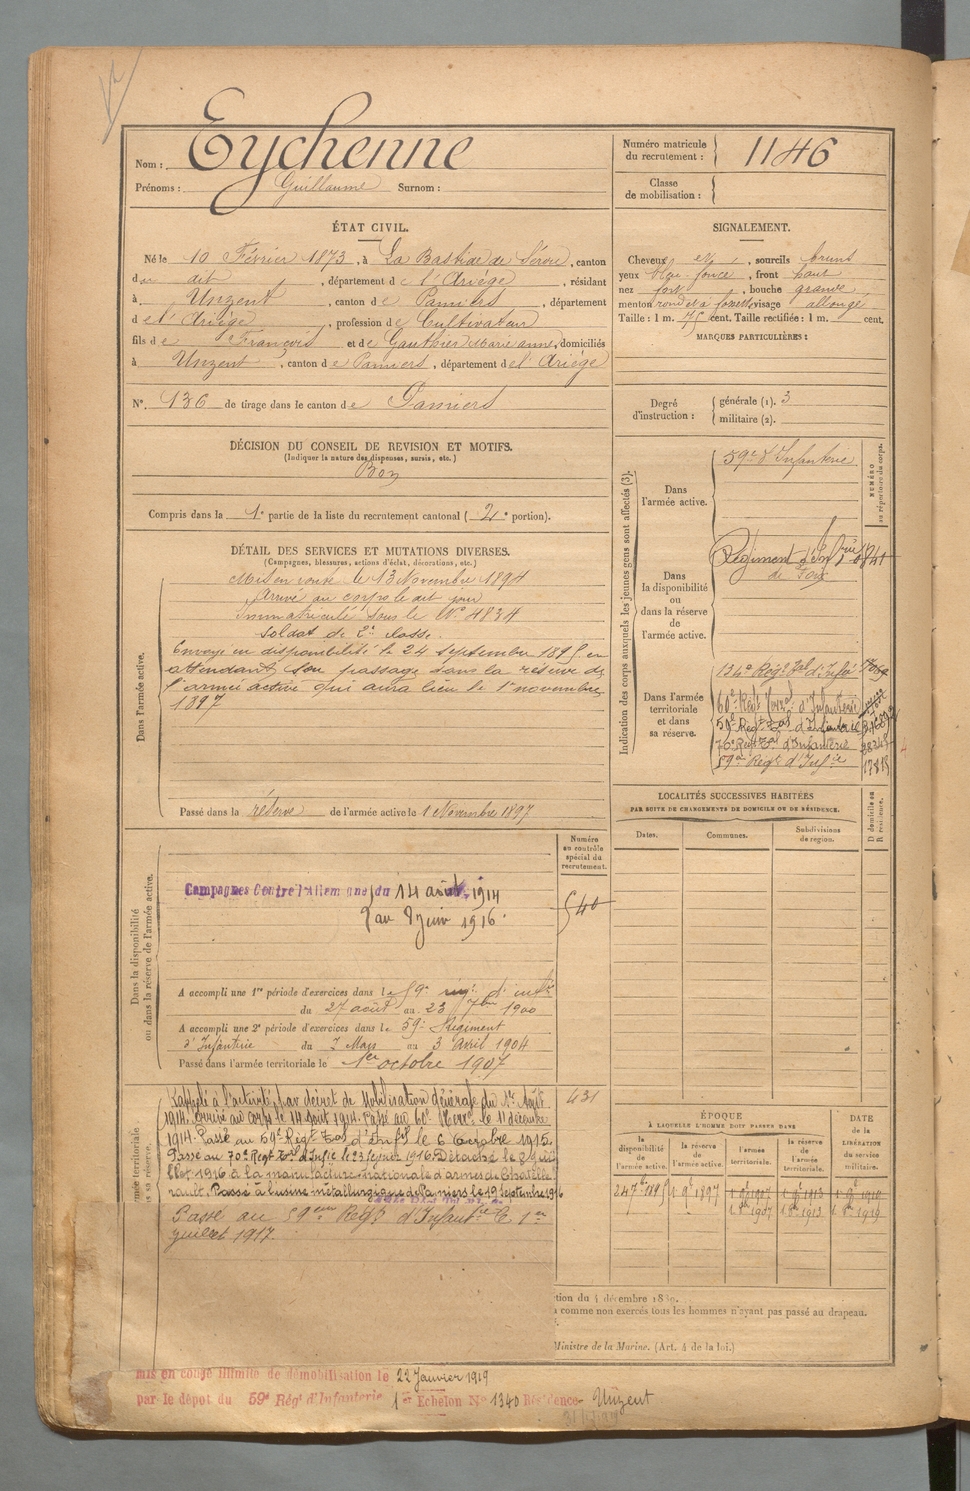 Nom : Eychenne
Prénoms : Guillaume Surnom :
Numéro matricule du recrutement : 1146
Classe de mobilisation :
ÉTAT CIVIL.
Né le 10 Février 1873, à La Bastide de Sérou, canton
du dit, département de l'Ariège, résidant
à Unzent, canton de Pamiers, département
de l'Ariège, profession de Cultivateur
fils de François et de Gauthier Marie anne, domiciliés
à Unzent, canton de Pamiers, département de l'Ariège
N°. 136 de tirage dans le canton de Pamiers
SIGNALEMENT.
Cheveux et, sourcils bruns
yeux foncé, front haut
nez fort, bouche grande
menton rond et à fossette visage allongé
Taille : 1 m. 75 cent. Taille rectifiée : 1 m. cent.
MARQUES PARTICULIÈRES :
Degré d'instruction : générale (1). 3
militaire (2).
DÉCISION DU CONSEIL DE REVISION ET MOTIFS.
(Indiquer la nature des dispenses, sursis, etc.)
Bon
Compris dans la 1e partie de la liste du recrutement cantonal (2e portion).
DÉTAIL DES SERVICES ET MUTATIONS DIVERSES.
(Campagnes, blessures, actions d'éclat, décorations, etc.)
Dans l'armée active.
Mis en route le 13 Novembre 1894
Arrivé au corps le dit jour
Immatriculé sous le N° 4834
Soldat de 2e classe.
Envoyé en disponibilité le 24 septembre 1895 en
attendant son passage dans la réserve de
l'armée active qui aura lieu le 1er novembre
1897
Passé dans la réserve de l'armée active le 1 Novembre 1897
Indication des corps auxquels les jeunes gens sont affectés (3).
NUMÉRO au répertoire du corps.
Dans l'armée active.
59e d'Infanterie
Dans la disponibilité ou dans la réserve de l'armée active.
Régiment d'Infrie
de Foix
Dans l'armée territoriale et dans sa réserve.
134e Régt Tal d'Infie
60e Régt Terral d'Infanterie
59e Régt Tal d'Infanterie
70e Régt Tal d'Infanterie
59e Régt d'Infie 17815
LOCALITÉS SUCCESSIVES HABITÉES
PAR SUITE DE CHANGEMENTS DE DOMICILE OU DE RÉSIDENCE.
Dates. Communes. Subdivisions de région. D domicile ou R résidence.
Dans la disponibilité ou dans la réserve de l'armée active.
Numéro au contrôle spécial du recrutement.
540
Campagnes Contre l'Allemagne du 14 août 1914
au 8 Juin 1916
A accompli une 1re période d'exercices dans le 59e rég. d'infie
du 27 août au 23 7bre 1900
A accompli une 2e période d'exercices dans le 59e Régiment
d'Infanterie du 7 Mars au 3 Avril 1904
Passé dans l'armée territoriale le 1er octobre 1907
431
Rappelé à l'activité par décret de Mobilisation Générale du 1er Août
1914. Arrivé au corps le 14 Août 1914. Passé au 60e Terral le 11 décembre
1914. Passé au 59e Régt Tal d'Infie le 6 Octobre 1915.
Passé au 70e Régt Tal d'Infie le 23 février 1916. Détaché le 8 Jui
llet 1916 à la manufacture nationale d'armes de Chatelle
rault. Passé à l'usine métallurgique de Pamiers le 19 Septembre 1916
Passé au 59eme Régt d'Infantie le 1er
Juillet 1917.
ÉPOQUE
À LAQUELLE L'HOMME DOIT PASSER DANS
la disponibilité de l'armée active. la réserve de l'armée active. l'armée territoriale. la réserve de l'armée territoriale. DATE de la LIBÉRATION du service militaire.
24 7bre 1895 1 9bre 1897 1 9bre 1907 1 9bre 1913 1 9bre 1919
1 8bre 1907 1 8bre 1913 1 8bre 1919
comme non exercés tous les hommes n'ayant pas passé au drapeau.
Ministre de la Marine. (Art. 4 de la loi.)
mis en congé illimité de démobilisation le 22 Janvier 1919
par le dépot du 59e Régt d'Infanterie 1er Echelon N° 1340 Résidence Unzent